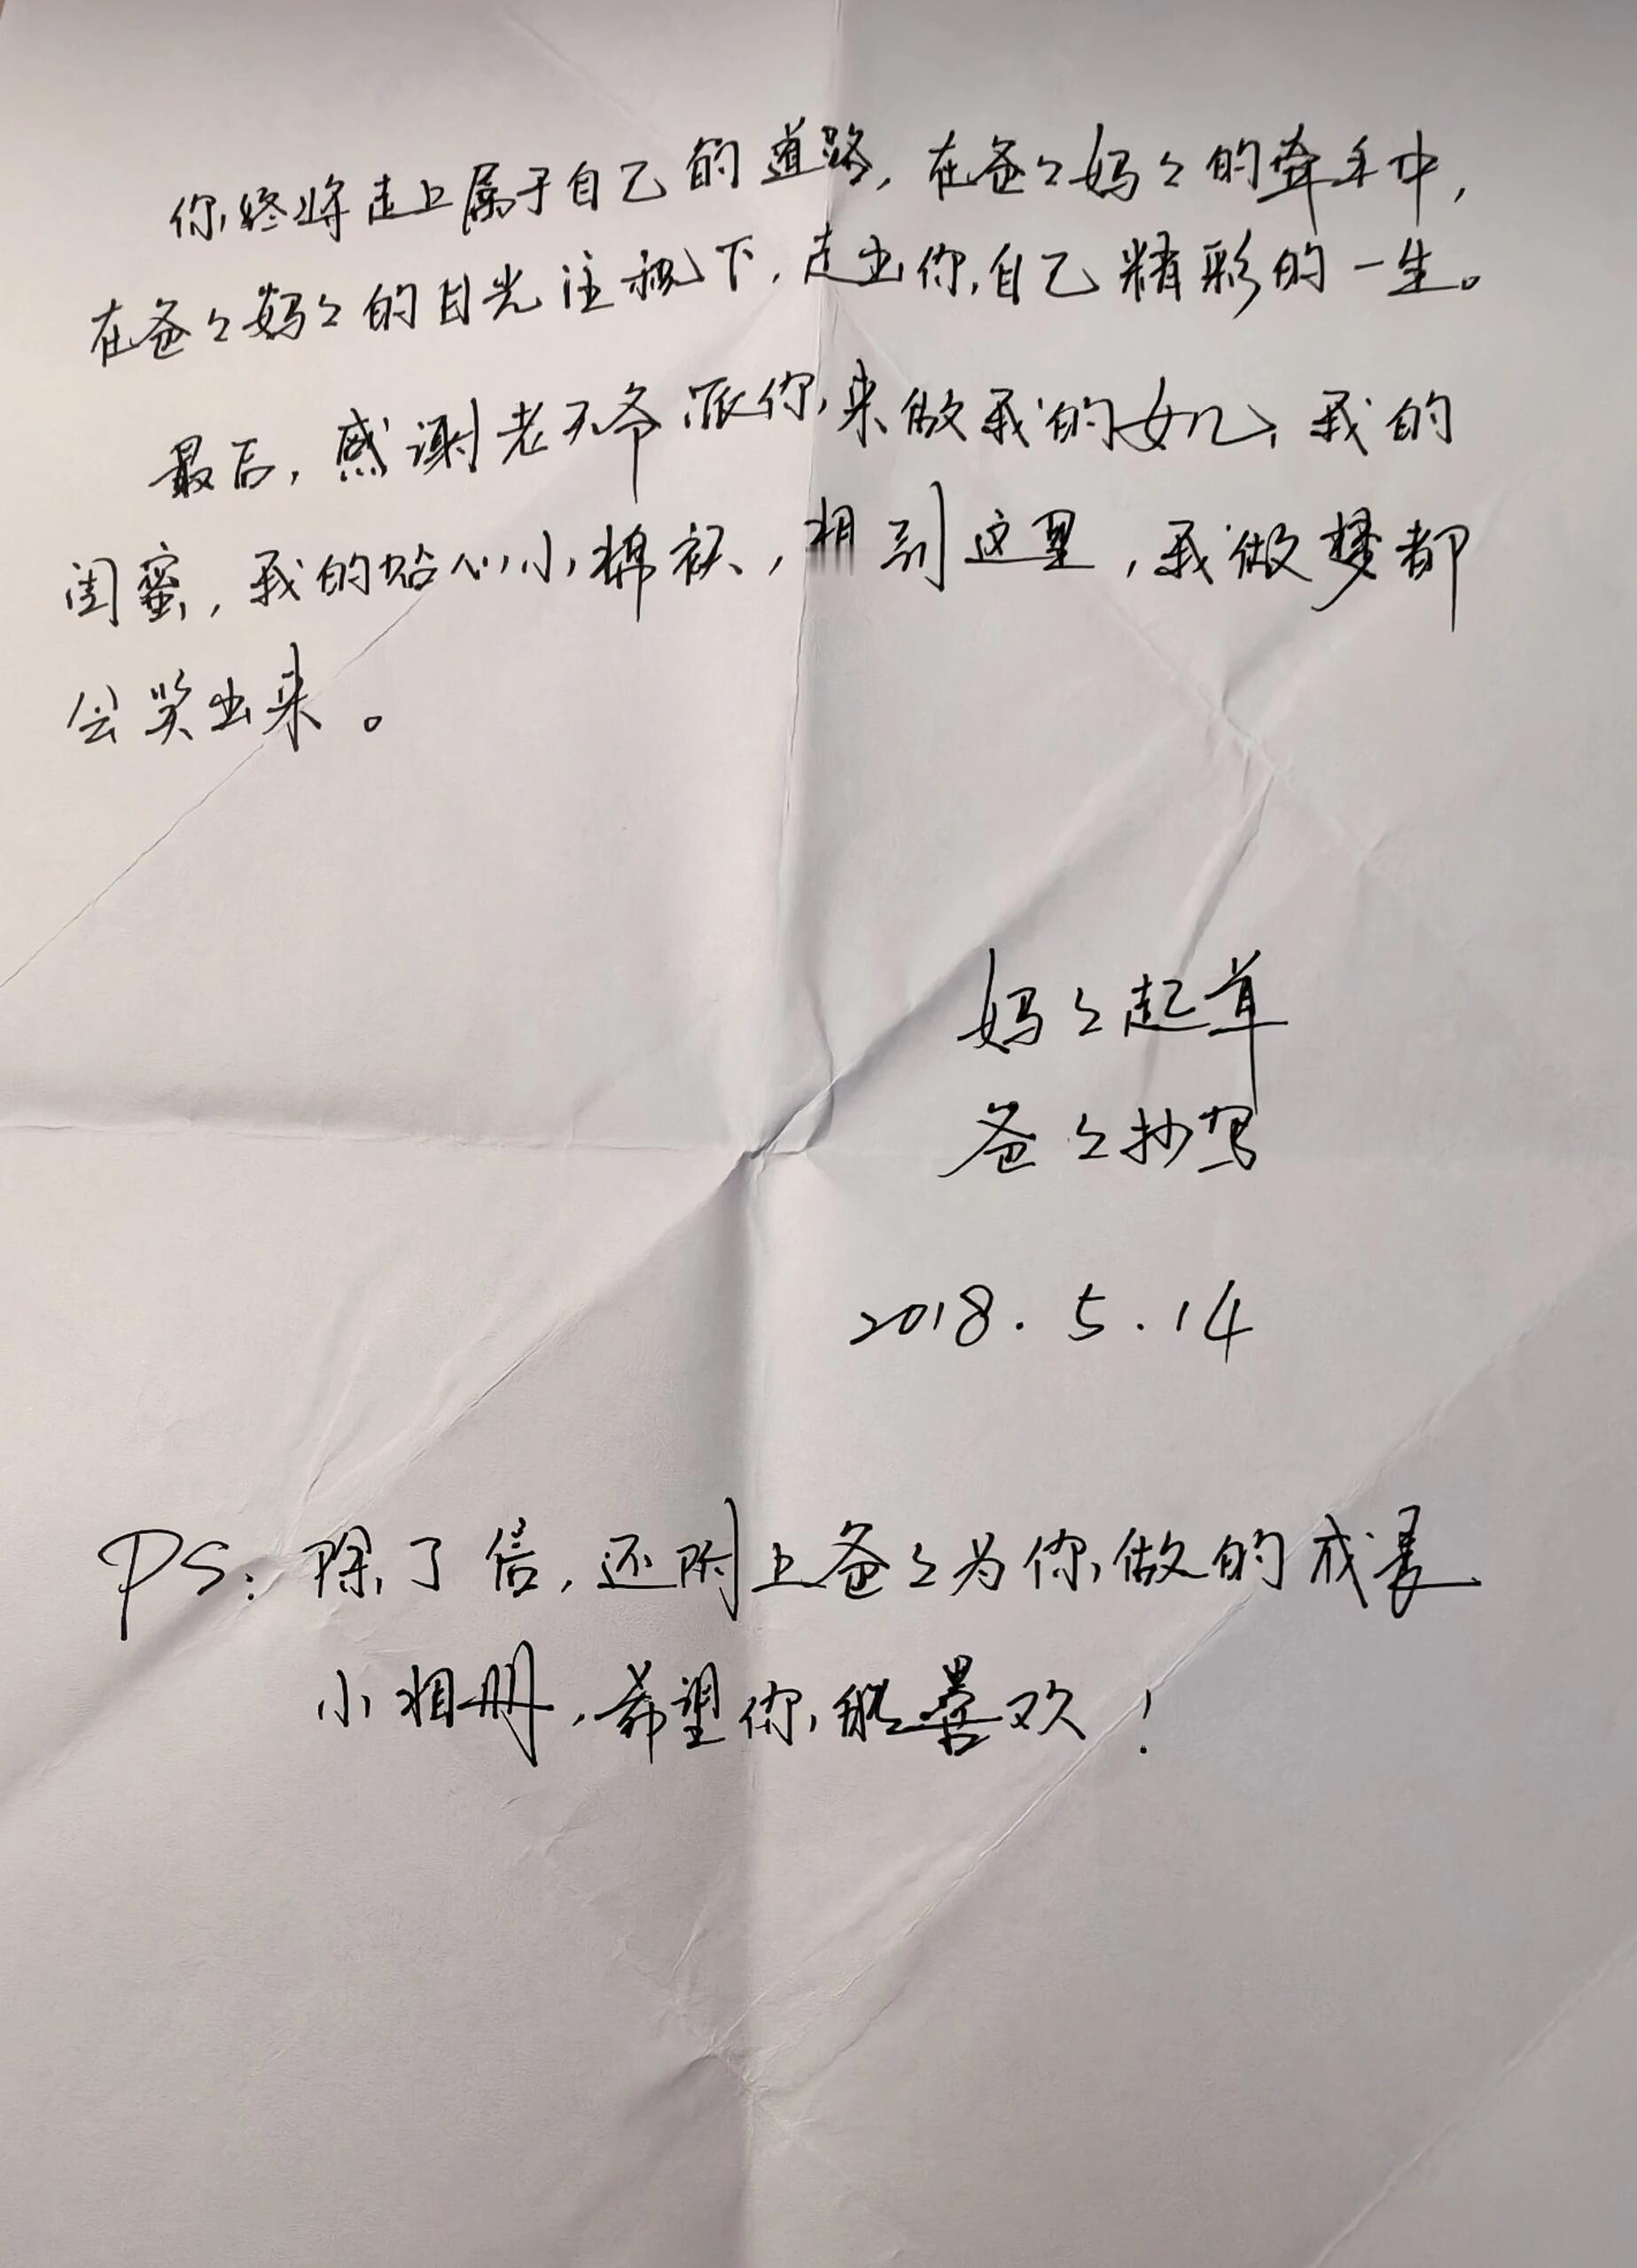 你终将走上属于自己的道路，在爸々妈々的牵手中，
在爸々妈々的目光注视下，走出你自己精彩的一生。
最后，感谢老天爷派你来做我的女儿，我的
闺蜜，我的贴心小棉袄，想到这里，我做梦都
会笑出来。
妈々起草
爸々抄写
2018.5.14
PS：除了信，还附上爸々为你做的成长
小相册，希望你能喜欢！